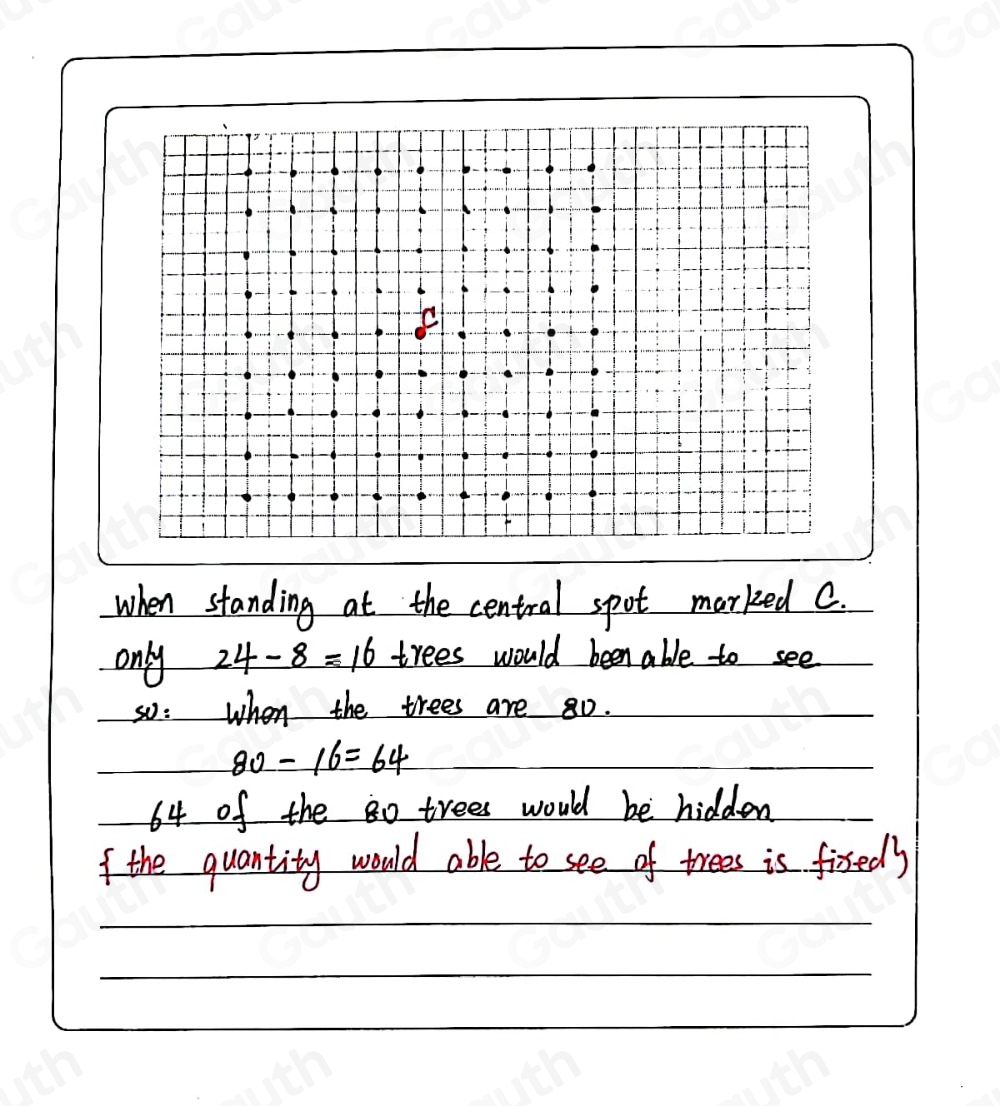 C
when standing at the central spot marked C.
only 24-8=16 trees would been able to see
so: When the trees are 80.
80-16=64
64 of the 80 trees would be hidden
{the quantity would able to see of trees is fixed}